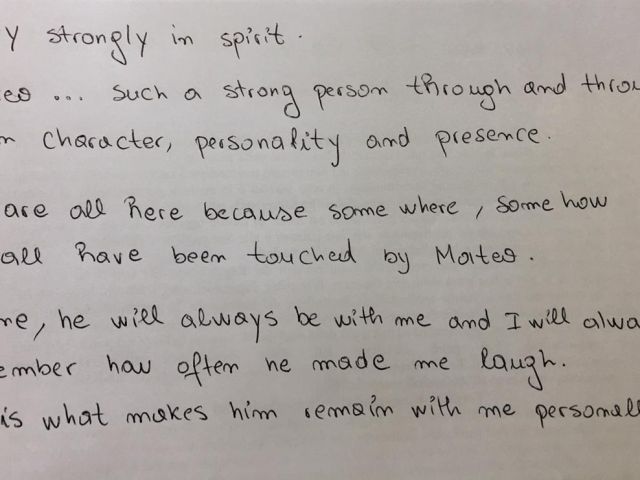 y strongly in spirit.
eo ... such a strong person through and throu
n character, personality and presence.
are all here because some where, some how
all have been touched by Mateo.
me, he will always be with me and I will alwa
ember how often he made me laugh.
is what makes him remain with me personall